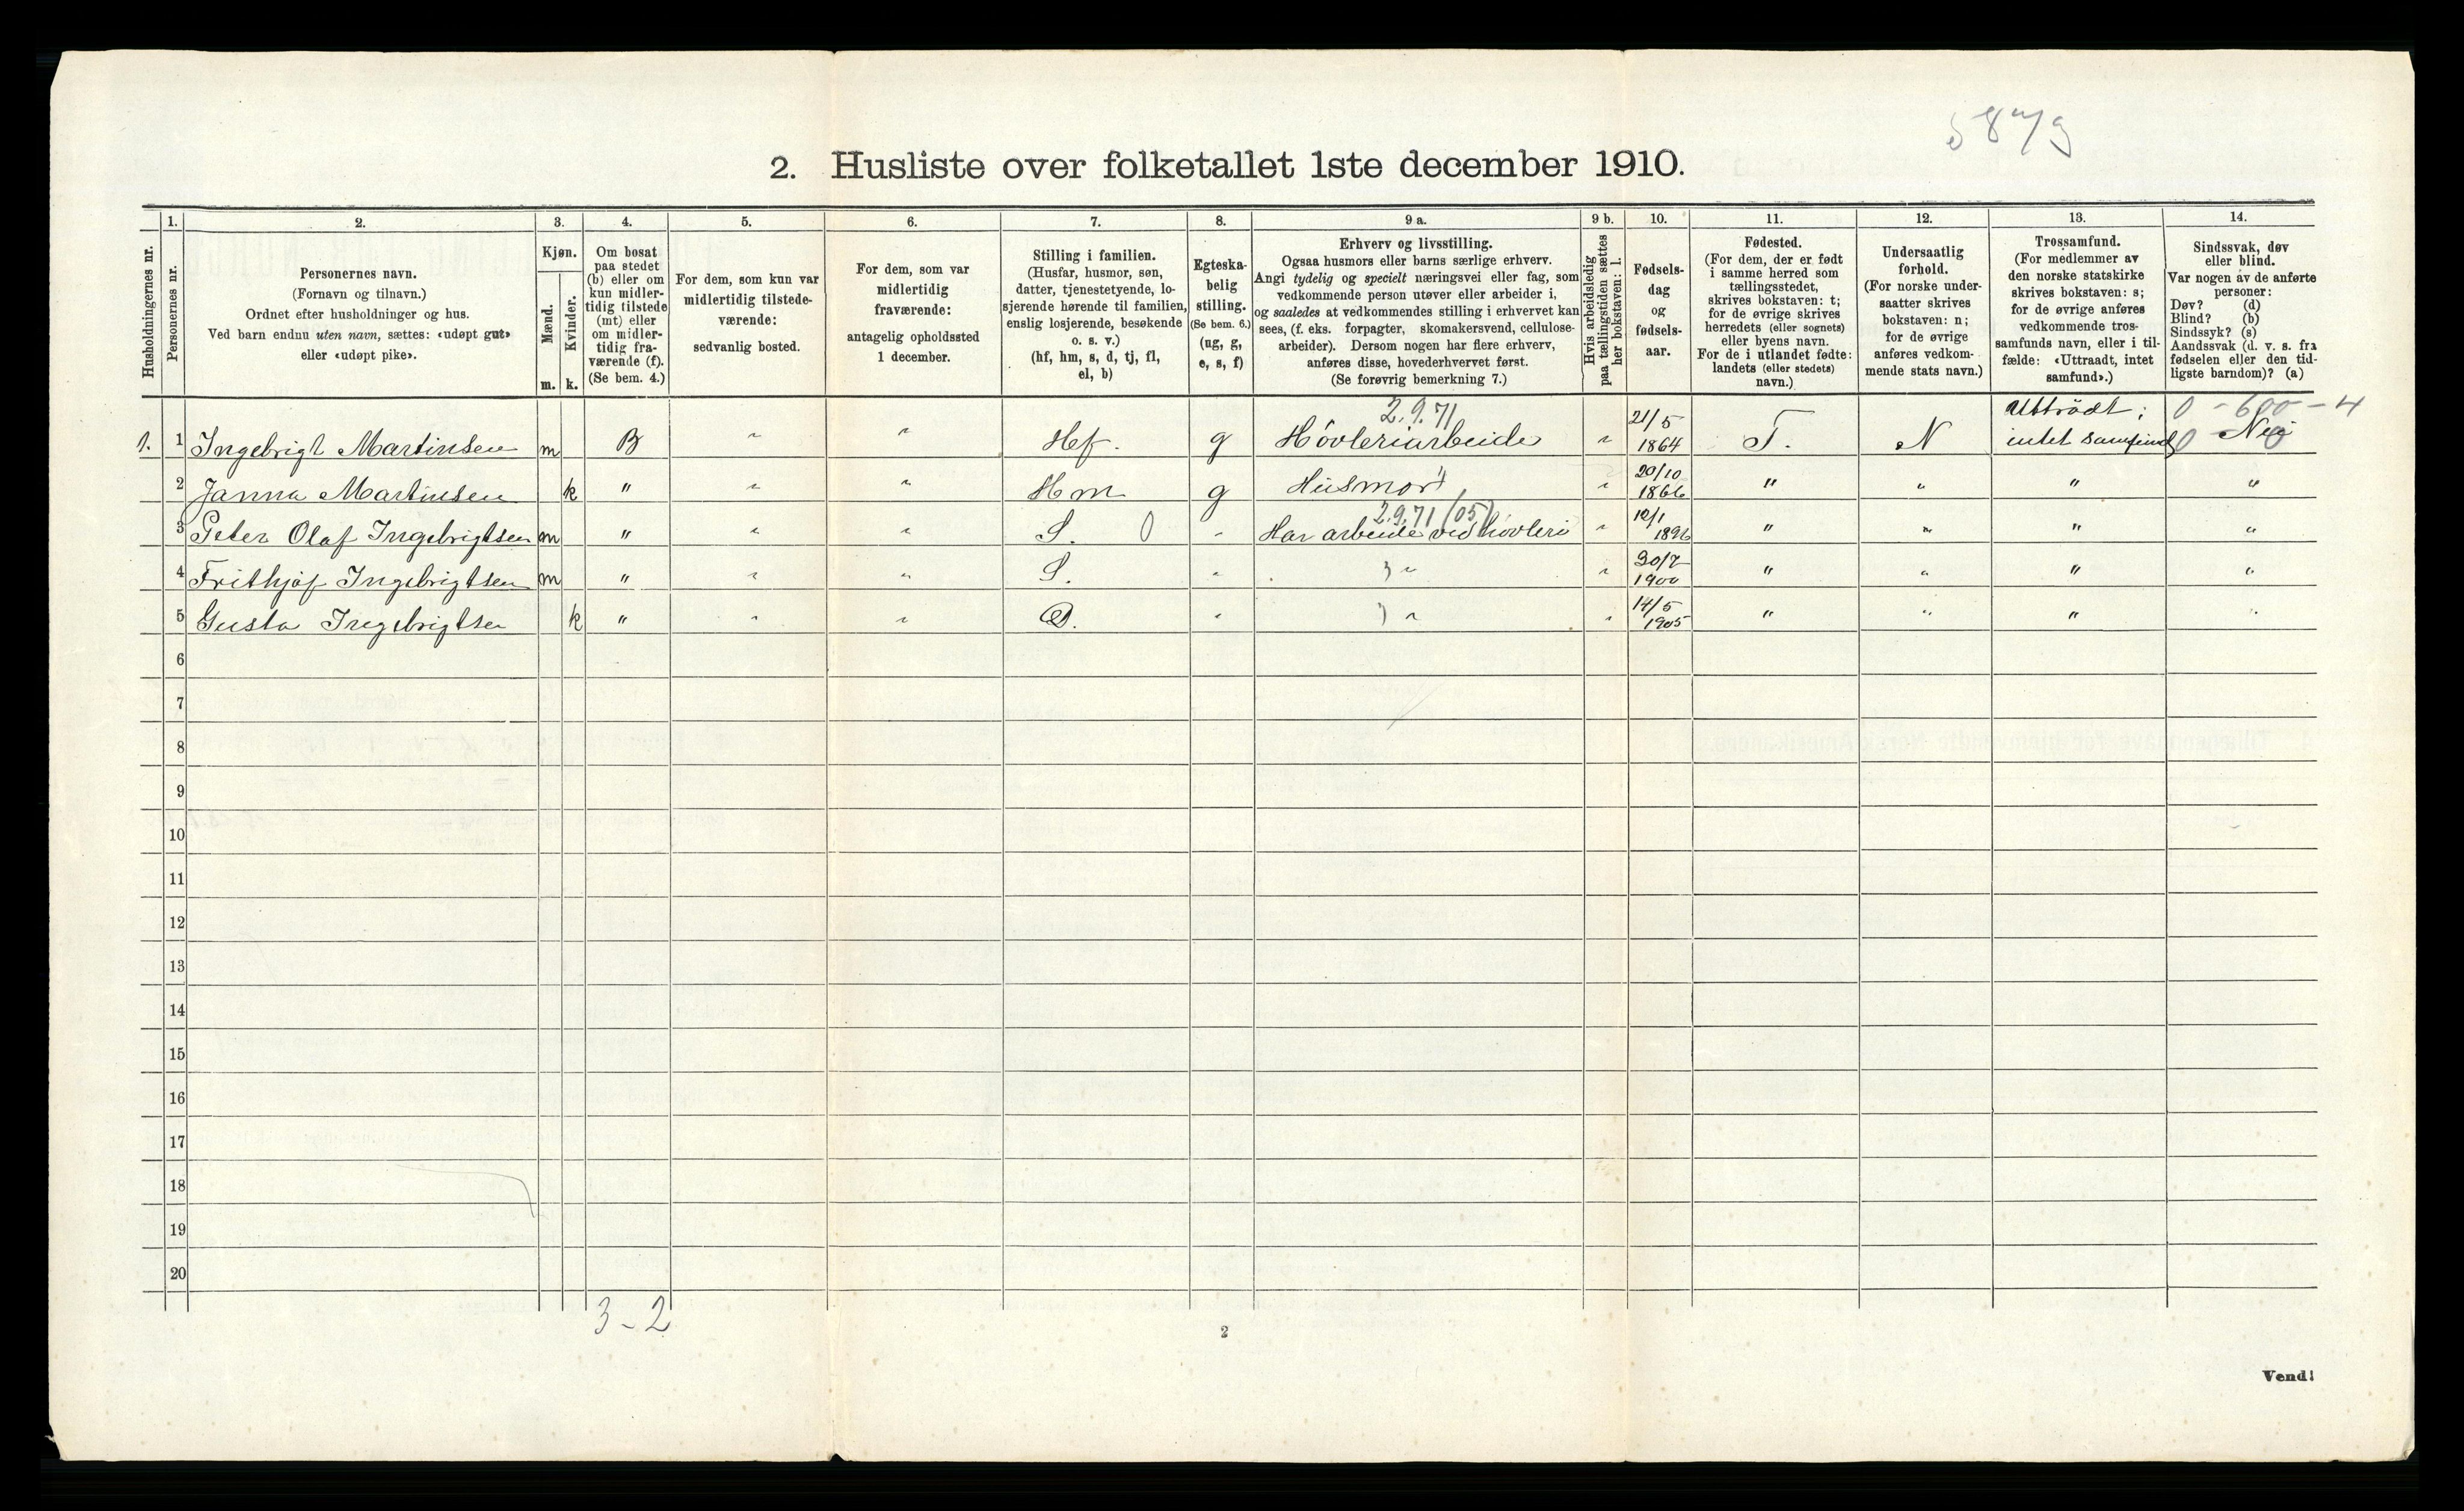 2. Husliste over folketallet 1ste december 1910.
Husholdningernes nr.
1.
Personernes nr.
2.
Personernes navn.
(Fornavn og tilnavn.)
Ordnet efter husholdninger og hus.
Ved barn endnu uten navn, sættes: «udøpt gut»
eller «udøpt pike».
3.
Kjøn.
Mænd.
Kvinder.
m. k.
4.
Om bosat
paa stedet
(b) eller om
kun midler-
tidig tilstede
(mt) eller
om midler-
tidig fra-
værende (f).
(Se bem. 4.)
5.
For dem, som kun var
midlertidig tilstede-
værende:
sedvanlig bosted.
6.
For dem, som var
midlertidig
fraværende:
antagelig opholdssted
1 december.
7.
Stilling i familien.
(Husfar, husmor, søn,
datter, tjenestetyende, lo-
sjerende hørende til familien,
enslig losjerende, besøkende
o. s. v.)
(hf, hm, s, d, tj, fl,
el, b)
8.
Egteska-
belig
stilling.
(Se bem. 6.)
(ug, g,
e, s, f)
9 a.
Erhverv og livsstilling.
Ogsaa husmors eller barns særlige erhverv.
Angi tydelig og specielt næringsvei eller fag, som
vedkommende person utøver eller arbeider i,
og saaledes at vedkommendes stilling i erhvervet kan
sees, (f. eks. forpagter, skomakersvend, cellulose-
arbeider). Dersom nogen har flere erhverv,
anføres disse, hovederhvervet først.
(Se forøvrig bemerkning 7.)
9 b.
Hvis arbeidsledig
paa tællingstiden sættes
her bokstaven: l.
10.
Fødsels-
dag
og
fødsels-
aar.
11.
Fødested.
(For dem, der er født
i samme herred som
tællingsstedet,
skrives bokstaven: t;
for de øvrige skrives
herredets (eller sognets)
eller byens navn.
For de i utlandet fødte:
landets (eller stedets)
navn.)
12.
Undersaatlig
forhold.
(For norske under-
saatter skrives
bokstaven: n;
for de øvrige
anføres vedkom-
mende stats navn.)
13.
Trossamfund.
(For medlemmer av
den norske statskirke
skrives bokstaven: s;
for de øvrige anføres
vedkommende tros-
samfunds navn, eller i til-
fælde: «Uttraadt, intet
samfund».)
14.
Sindssvak, døv
eller blind.
Var nogen av de anførte
personer:
Døv? (d)
Blind? (b)
Sindssyk? (s)
Aandssvak (d. v. s. fra
fødselen eller den tid-
ligste barndom)? (a)
2.9.71 21/5 Uttrådt; 0 - 600 - 4
1. 1 Ingebrigt Martinsen m B " " Hf. g Høvleriarbeide " 1864 T. N intet samfund Nei
20/10
2 Janna Martinsen k " " " Hm g Husmor " 1866 " " " "
2.9.71 (05)
3 Peter Olaf Ingebrigtsen m " " " S. 0 - Har arbeide ved høvleri " 1896 " " " "
4 Frithjof Ingebrigtsen m " " " S. " " " 30/7 1900 " " " "
5 Gusta Ingebrigtsen k " " " D. " " " 14/5 1905 " " " "
6
7
8
9
10
11
12
13
14
15
16
17
18
19
20
3 - 2
2
Vend!